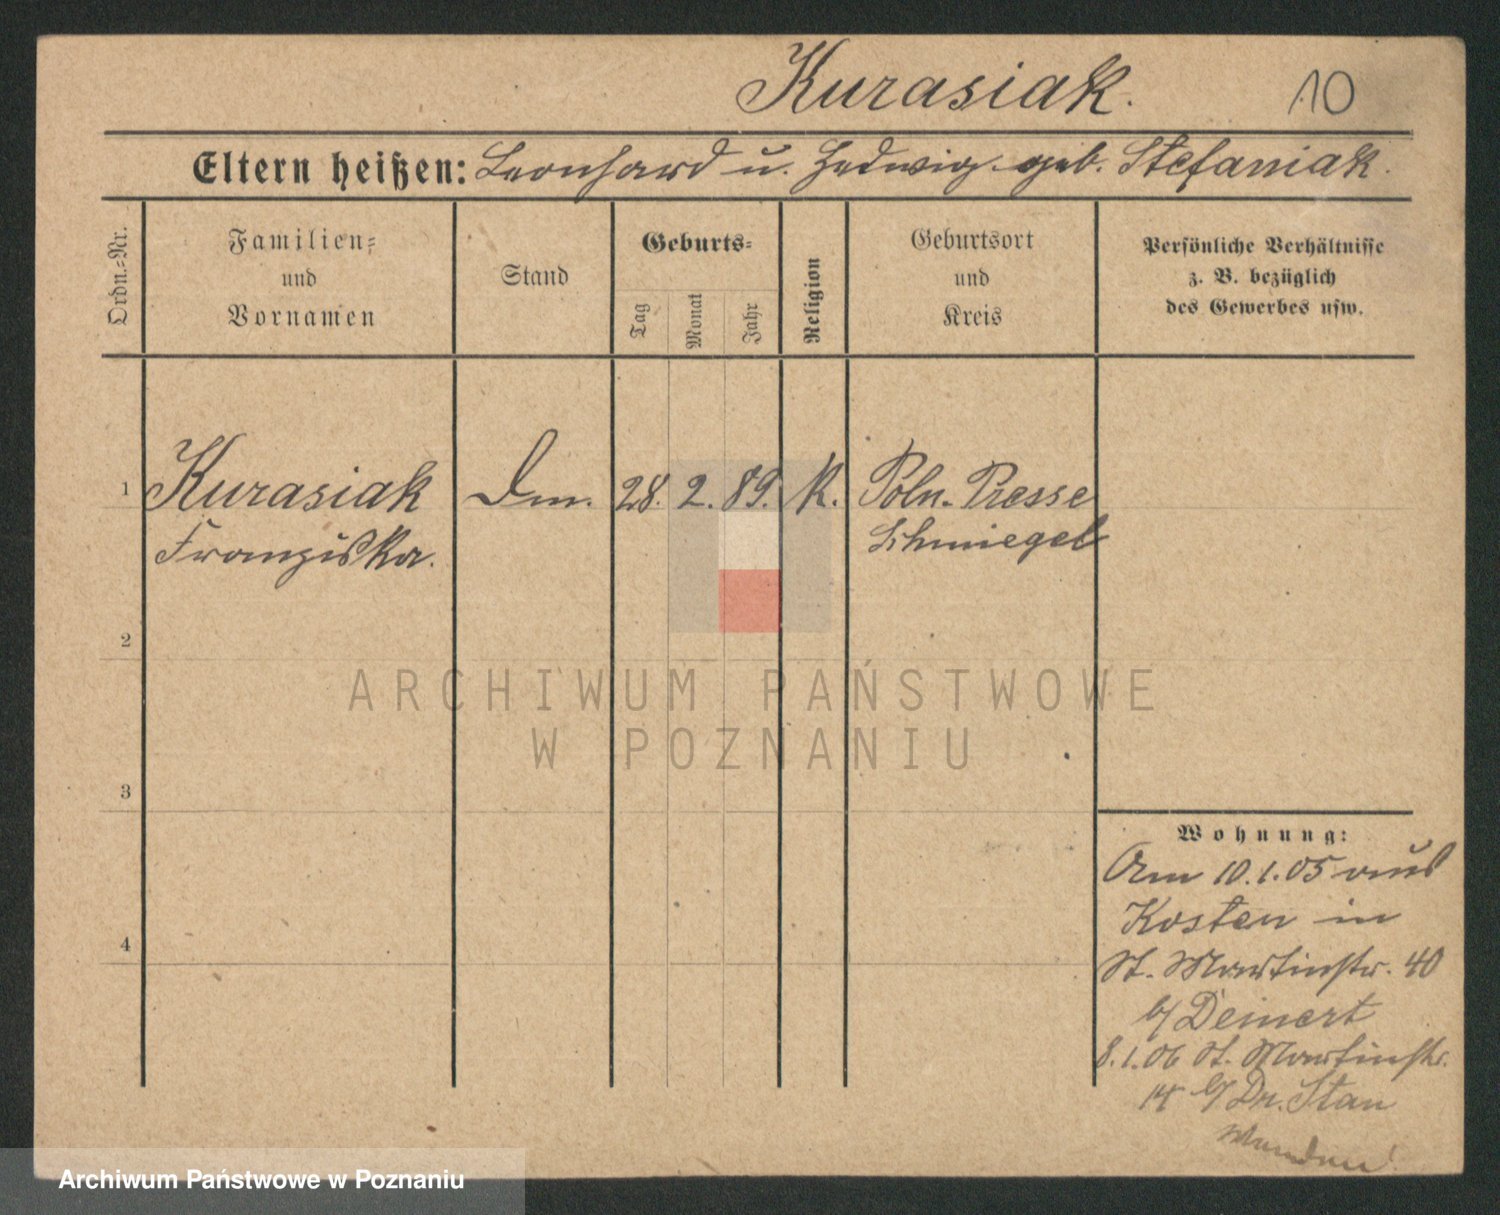 Kurasiak. 10
Eltern heißen: Leonhard u. Hedwig geb. Stefaniak.
Ordn.-Nr.
Familien-
und
Vornamen
Stand
Geburts-
Tag
Monat
Jahr
Religion
Geburtsort
und
Kreis
Persönliche Verhältnisse
z. B. bezüglich
des Gewerbes usw.
1 Kurasiak Dm. 28. 2. 89. K. Poln. Presse
Franziska. Schmiegel
2
3
4
Wohnung:
Am 10.1.05 aus
Kosten in
St. Martinstr. 40
b/ Deinert
8.1.06 St. Martinstr.
14 b/ Dr. Stan
ARCHIWUM PAŃSTWOWE
W POZNANIU
Archiwum Państwowe w Poznaniu